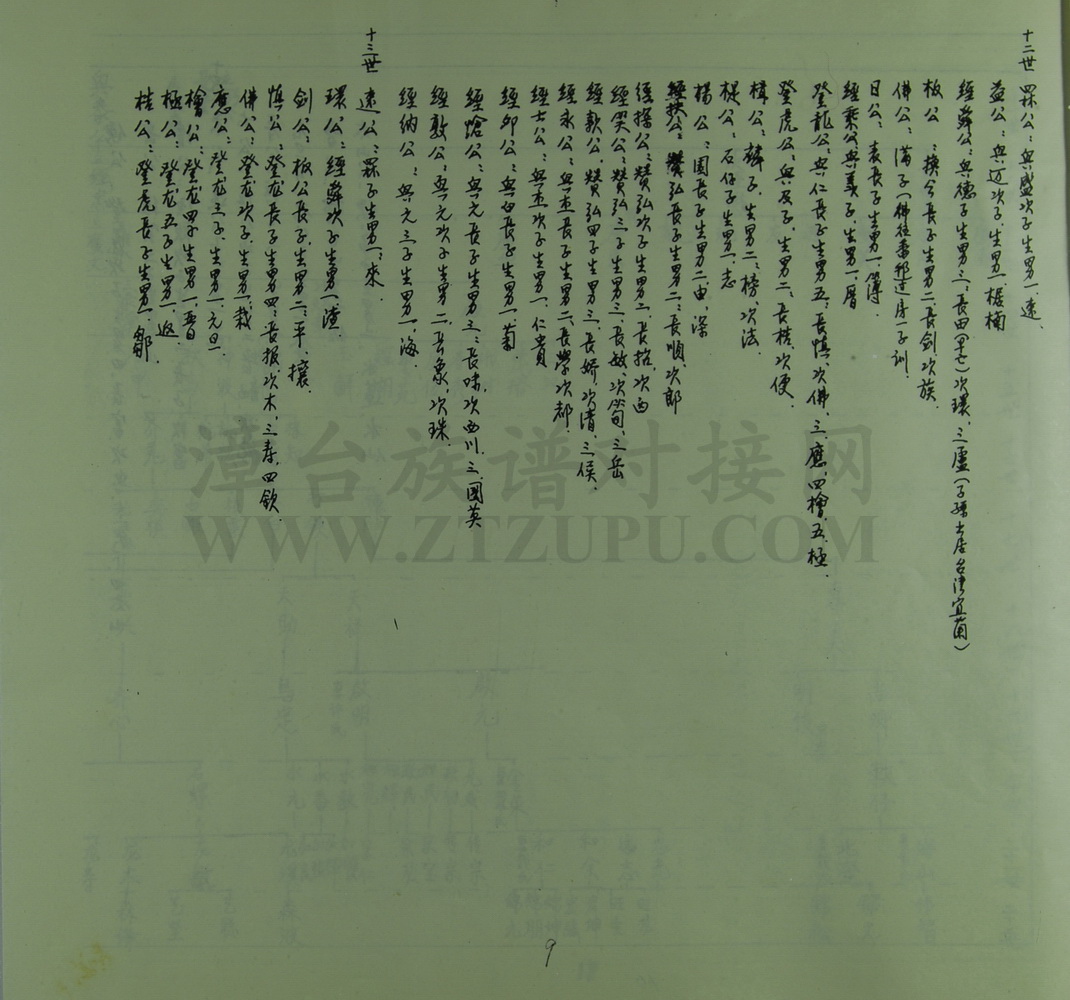 十二世 罧公：與盛次子生男一遠．
益公：與近次子．生男一：楹楠
經舜公：與德子生男三：長田(早亡)次環．三盧(子孫土居台湾宜蘭)
板公：換公長子．生男二：長劍次族．
佛公：滿子(佛往番邦)過房一子訓．
日公：表長子生男一簿
經乘公：與義子．生男一：層
登龍公：與仁長子生男五：長慎．次佛．三應．四檜五極．
登虎公：與及子．生男二：長桂．次便．
樟公：鱗子．生男二：榜．次法．
梘公：石仔子生男一：志
楊公：圓長子生男二由．深
經扶公：贊弘長子生男二：長順．次郎
經操公：贊弘次子生男二：長招．次西
經笑公：贊弘三子生男三：長敏．次必筍．三岳
經款公：贊弘四子生男三：長嬌．次清．三侯．
經永公：與盂長子生男二：長學次都．
經士公：與盂次子生男一：仁貴
經卯公：與白長子生男一菊
經炝公：與元長子生男三：長味．次西川．三國英
經敦公：與元次子生男二：長象．次珠．
經納公：與元三子生男一：海．
十三世 遠公：罧子生男一：來．
環公：經舜次子生男一：潼．
劍公：板公長子．生男二：平．攘．
慎公：登龙長子生男四：長报次木．三春．四欽
佛公：登龙次子．生男一栽
應公：登龙三子．生男一：元旦．
檜公：登龙四子生男一：晋
極公：登龙五子生男一：返
桂公：登虎長子生男一：鄒．
漳台族谱对接网
WWW.ZTZUPU.COM
9